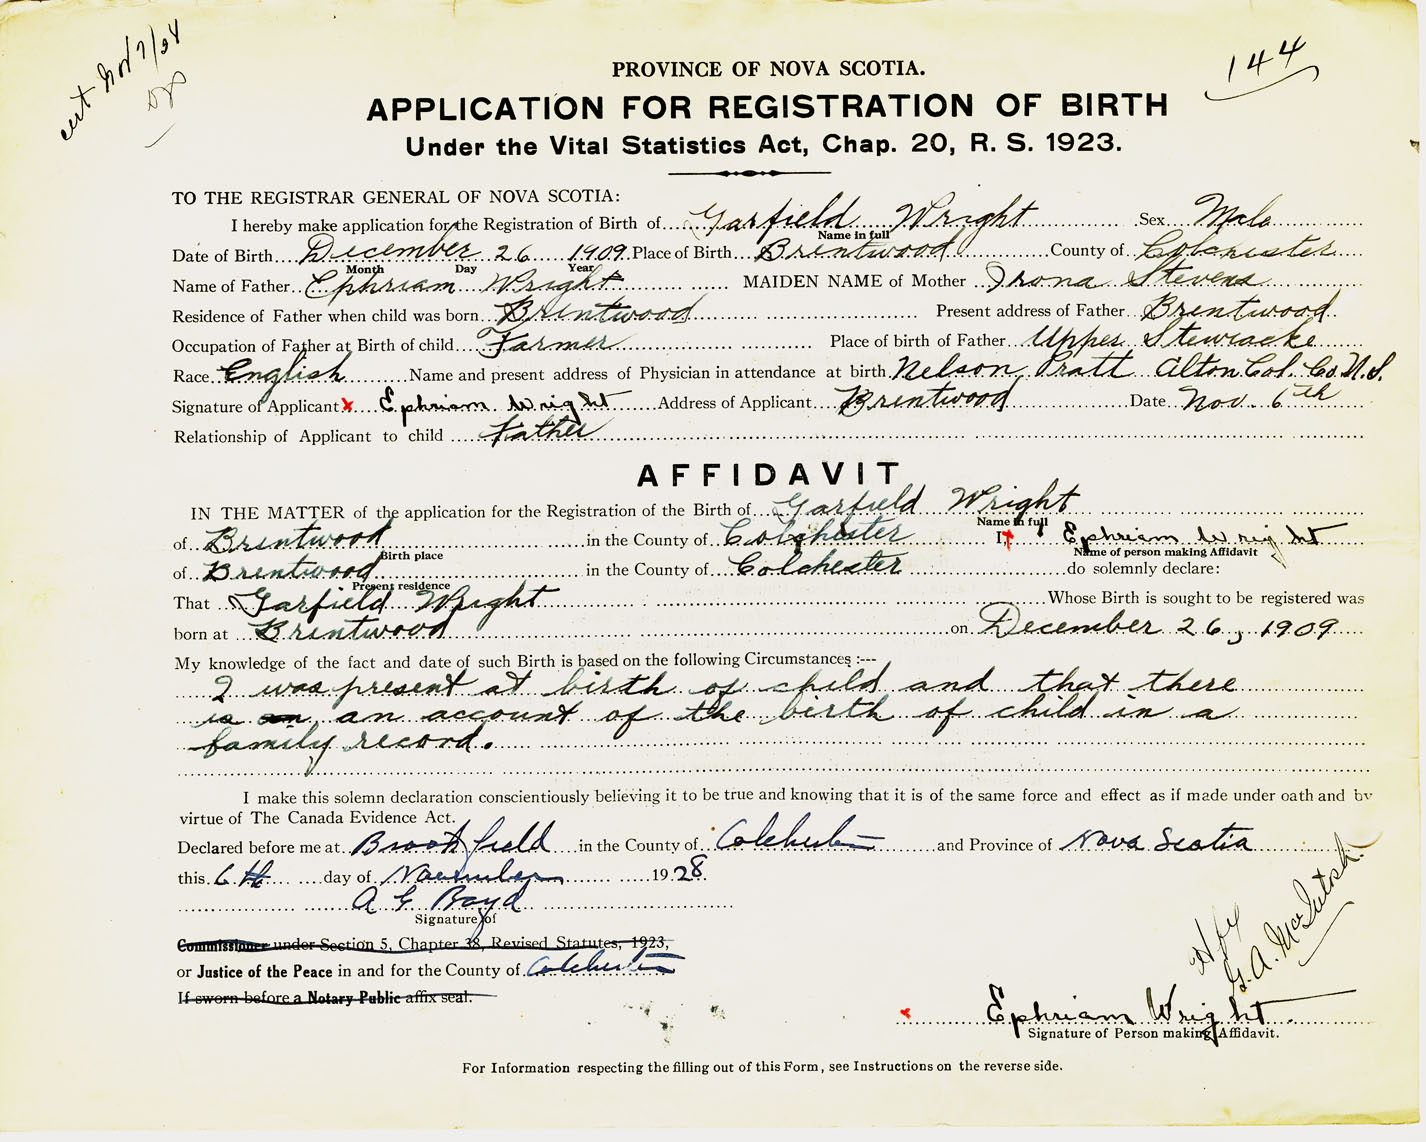 cert Nov 7/28
144
PROVINCE OF NOVA SCOTIA.
APPLICATION FOR REGISTRATION OF BIRTH
Under the Vital Statistics Act, Chap. 20, R. S. 1923.
TO THE REGISTRAR GENERAL OF NOVA SCOTIA:
I hereby make application for the Registration of Birth of Garfield Wright Sex Male
Name in full
Date of Birth December 26 1909 Place of Birth Brentwood County of Colchester
Month Day Year
Name of Father Ephriam Wright MAIDEN NAME of Mother Irona Stevens
Residence of Father when child was born Brentwood Present address of Father Brentwood
Occupation of Father at Birth of child Farmer Place of birth of Father Upper Stewiacke
Race English Name and present address of Physician in attendance at birth Nelson Pratt Alton Col. Co. N.S.
Signature of Applicant x Ephriam Wright Address of Applicant Brentwood Date Nov. 6th
Relationship of Applicant to child Father
AFFIDAVIT
IN THE MATTER of the application for the Registration of the Birth of Garfield Wright
Name in full
of Brentwood in the County of Colchester I, x Ephriam Wright
Birth place Name of person making Affidavit
of Brentwood in the County of Colchester do solemnly declare:
Present residence
That Garfield Wright Whose Birth is sought to be registered was
born at Brentwood on December 26, 1909
My knowledge of the fact and date of such Birth is based on the following Circumstances :---
I was present at birth of child and that there
is an an account of the birth of child in a
family record.
I make this solemn declaration conscientiously believing it to be true and knowing that it is of the same force and effect as if made under oath and by
virtue of The Canada Evidence Act.
Declared before me at Brookfield in the County of Colchester and Province of Nova Scotia
this 6th day of November 1928.
A G Boyd
Signature of
Commissioner under Section 5, Chapter 38, Revised Statutes, 1923,
or Justice of the Peace in and for the County of Colchester
If sworn before a Notary Public affix seal.
G. A. MacIntosh.
x Ephriam Wright.
Signature of Person making Affidavit.
For Information respecting the filling out of this Form, see Instructions on the reverse side.